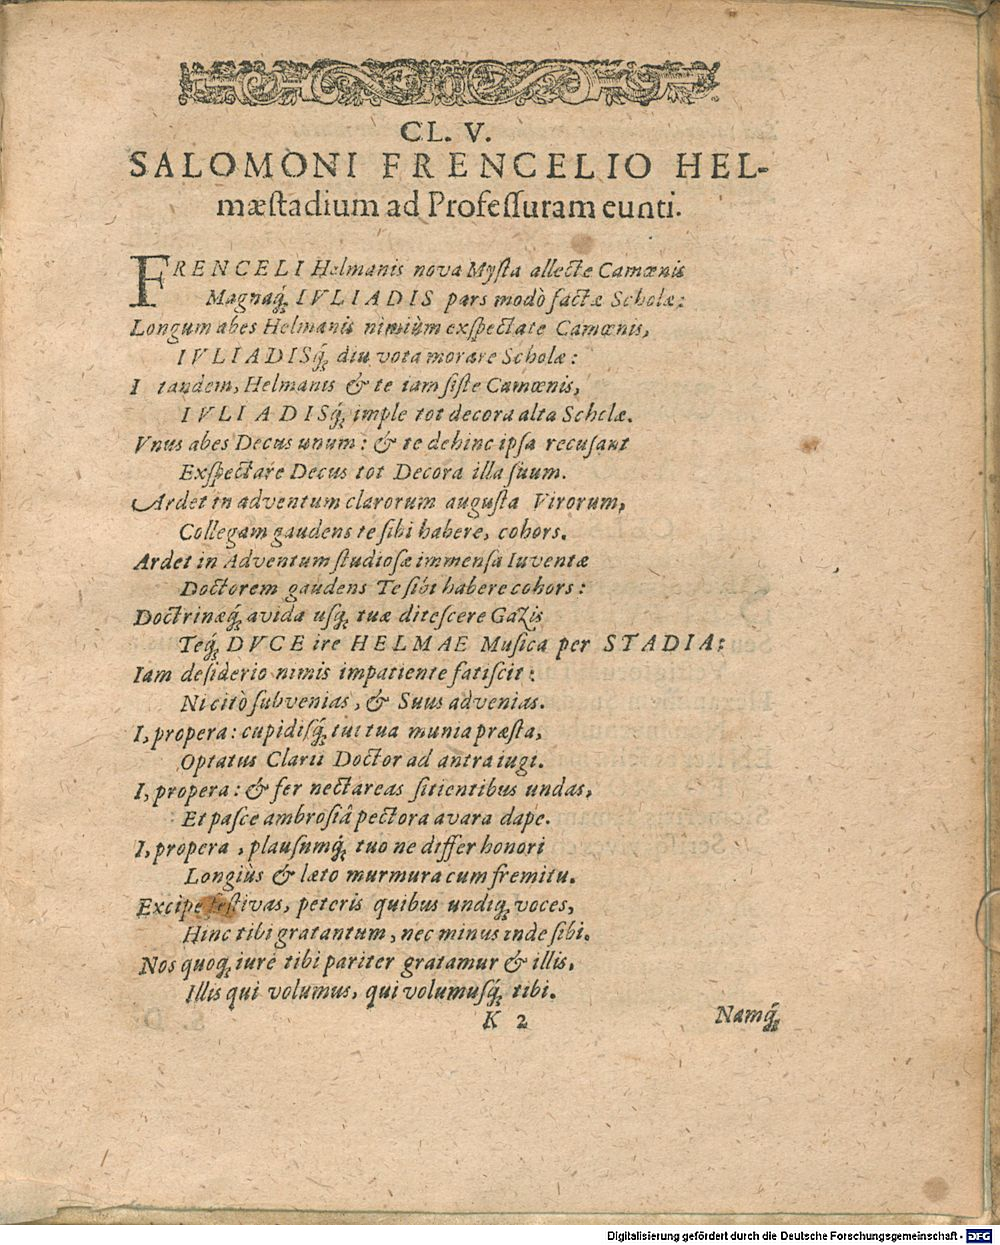 CL. V.
SALOMONI FRENCELIO HEL-
mæstadium ad Professuram eunti.
FRENCELI Helmanis nova Mysta allecte Camœnis
Magnaq́; IVLIADIS pars modò factæ Scholæ;
Longum abes Helmanis nimiùm exspectate Camœnis,
IVLIADISq́; diu vota morare Scholæ:
I tandem, Helmanis & te iam siste Camœnis,
IVLIADISq́; imple tot decora alta Scholæ.
Vnus abes Decus unum: & te dehinc ipsa recusant
Exspectare Decus tot Decora illa suum.
Ardet in adventum clarorum augusta Virorum,
Collegam gaudens te sibi habere, cohors.
Ardet in Adventum studiosæ immensa Iuventæ
Doctorem gaudens Te sibi habere cohors:
Doctrinæq́; avida usq́; tuæ ditescere Gazis
Teq́; DVCE ire HELMAE Musica per STADIA:
Iam desiderio nimis impatiente fatiscit:
Ni citò subvenias, & Suus advenias.
I, propera: cupidisq́; tui tua munia præsta,
Optatus Clarii Doctor ad antra iugi.
I, propera: & fer nectareas sitientibus undas,
Et pasce ambrosiâ pectora avara dape.
I, propera, plausumq́; tuo ne differ honori
Longiùs & læto murmura cum fremitu.
Excipe festivas, peteris quibus undiq́; voces,
Hinc tibi gratantum, nec minus inde sibi.
Nos quoq́; iure tibi pariter gratamur & illis,
Illis qui volumus, qui volumusq́; tibi.
K 2 Namq́;
Digitalisierung gefördert durch die Deutsche Forschungsgemeinschaft - DFG